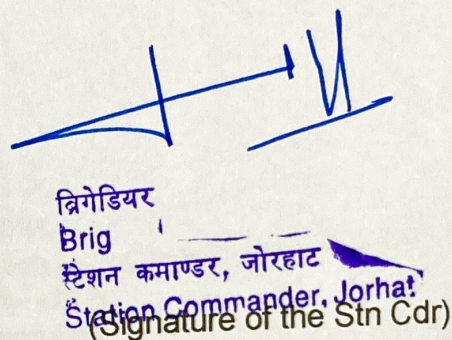 ब्रिगेडियर
Brig
स्टेशन कमाण्डर, जोरहाट
Station Commander, Jorhat
(Signature of the Stn Cdr)